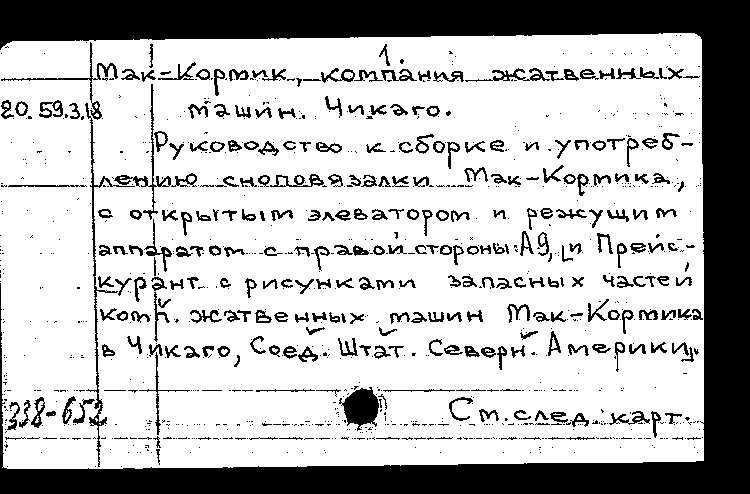 1.
Мак-Кормик, компания жатвенных
20.59.3.18 машин. Чикаго.
Руководство к сборке и употреб-
лению сноповязалки Мак-Кормика,
с открытым элеватором и режущим
аппаратом с правой стороны: А9, и Прейс-
курант с рисунками запасных частей
комп. жатвенных машин Мак-Кормика
в Чикаго, Соед. Штат. Северн. Америки
338-652 См. след. карт.